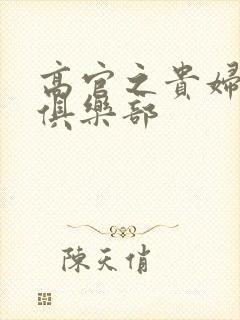 高官之貴婦
俱樂部
陳天俏